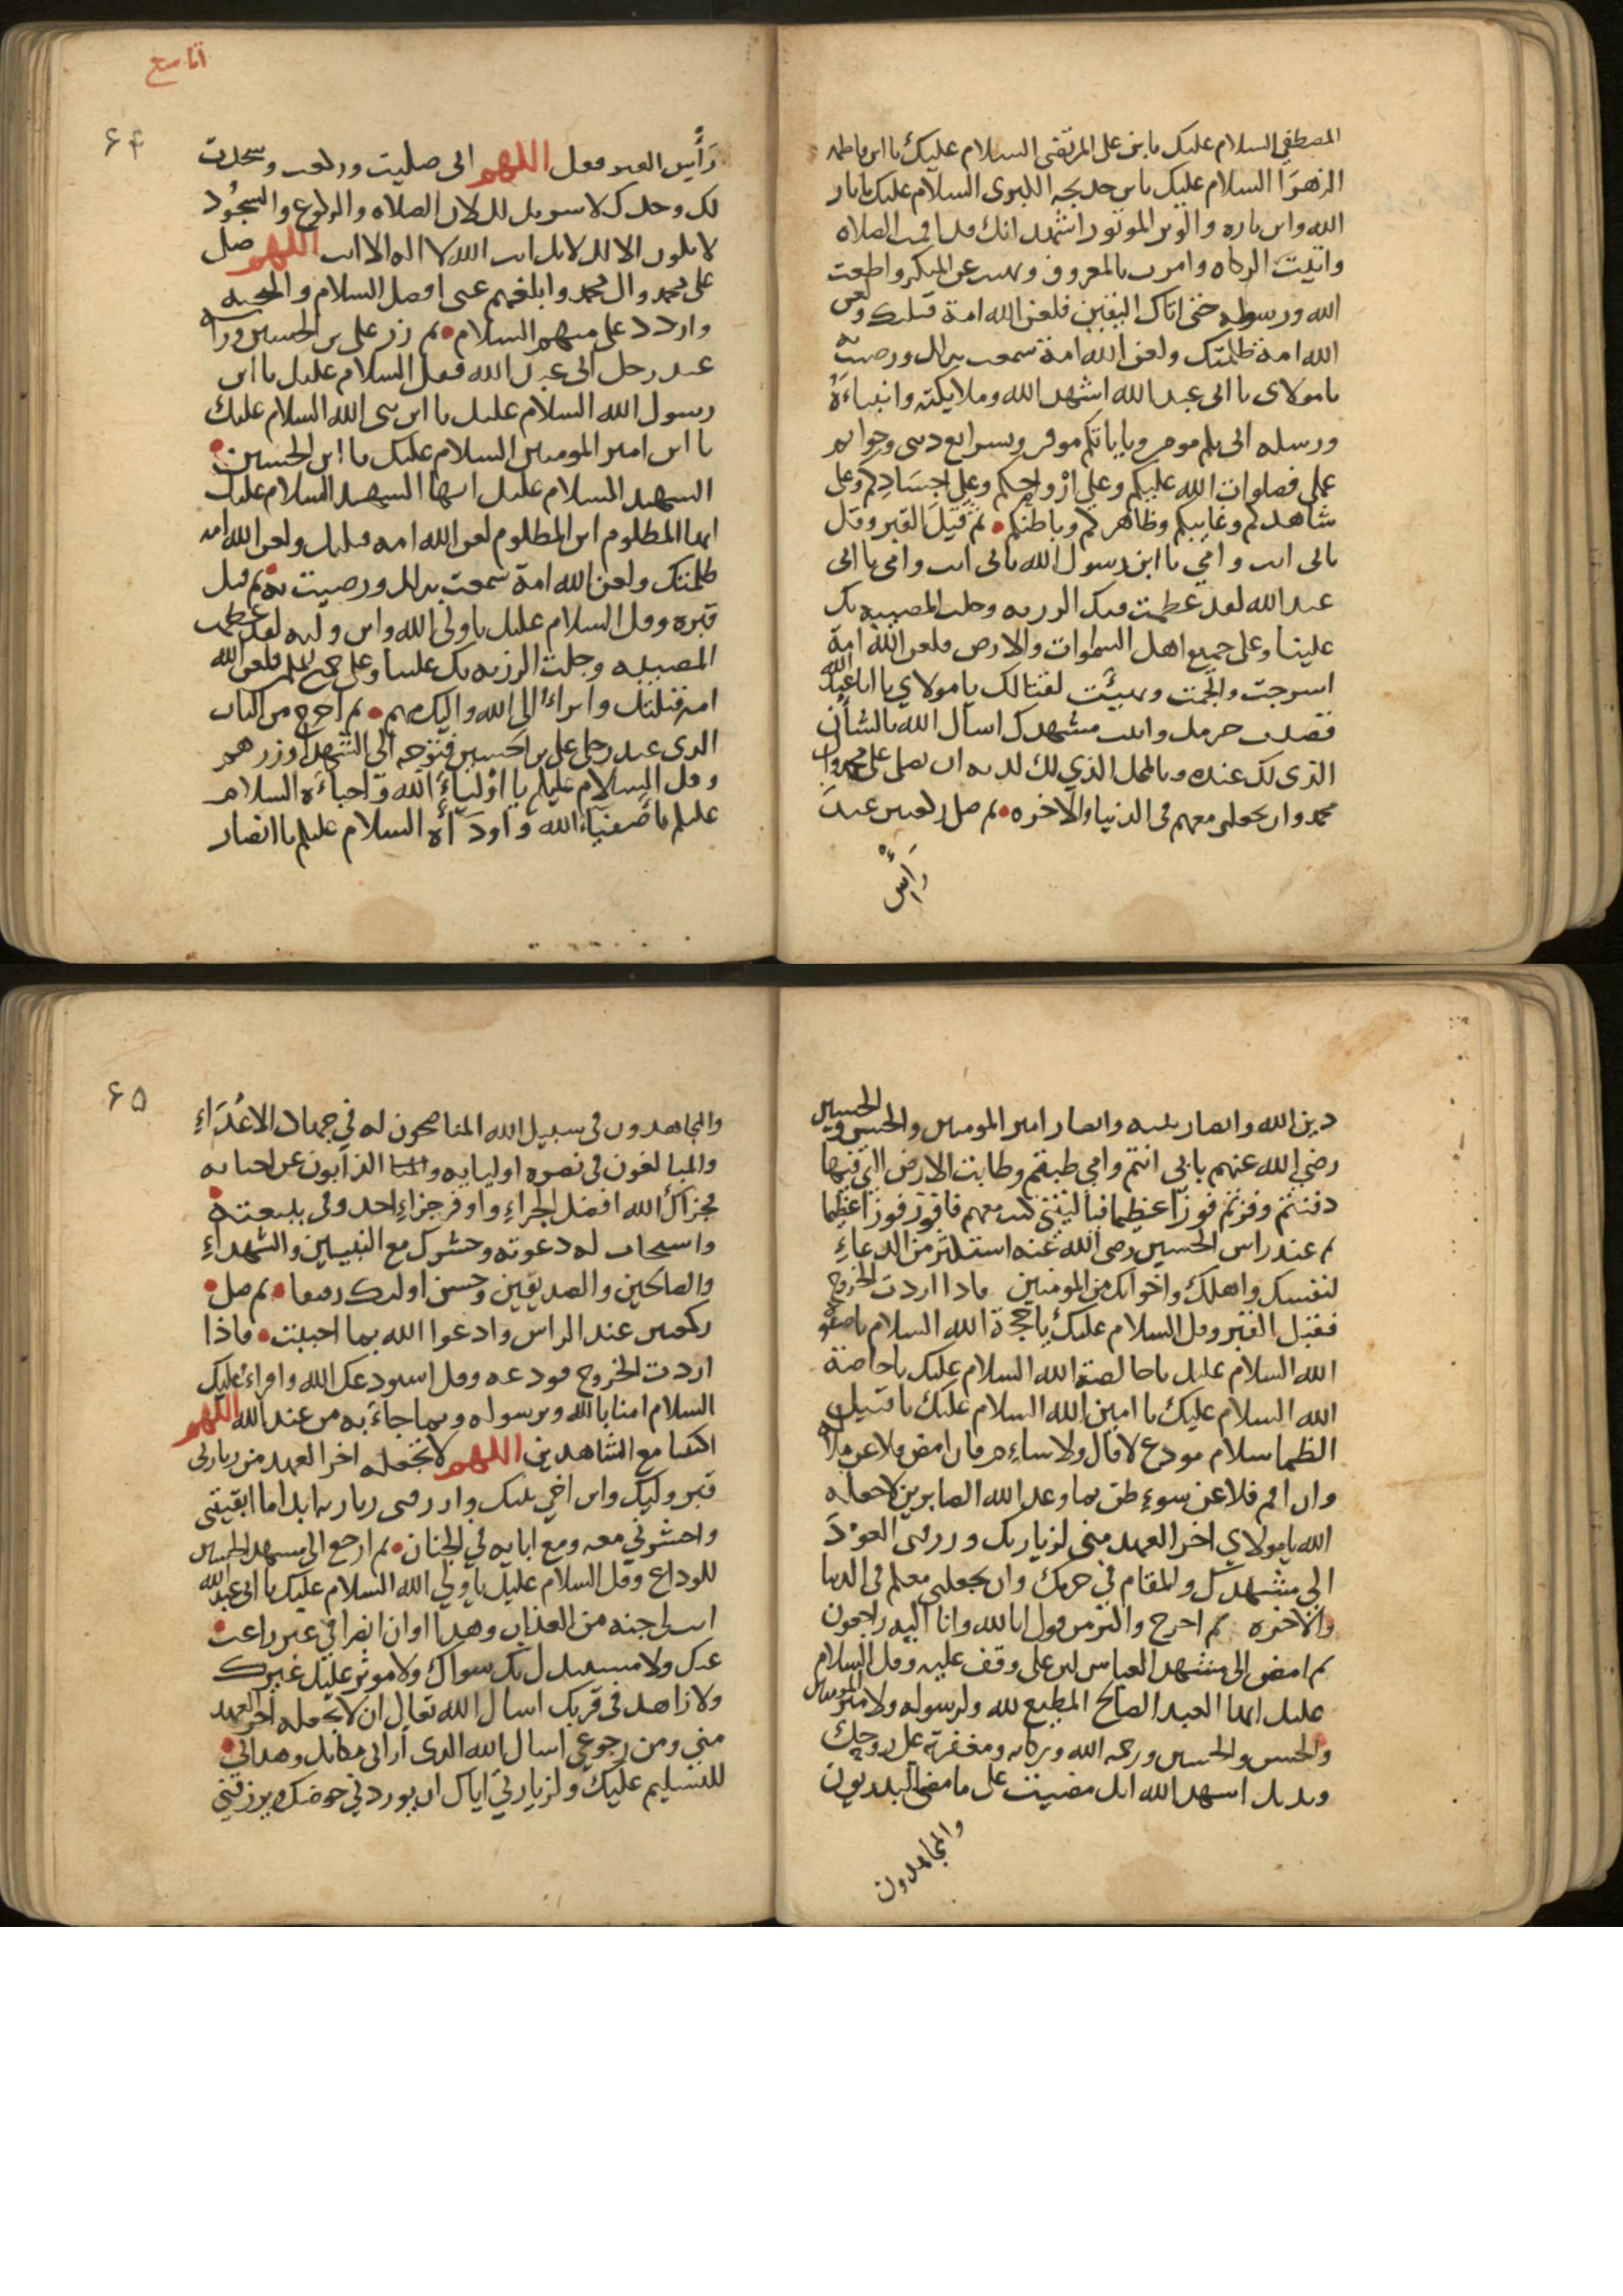 المصطفى السلام عليك يا بن على المرتضى السلام عليك يا ابن فاطمه
الزهرا السلام عليك يا بن خديجه الكبرى السلام عليك يا ثار
الله وابن ثاره والوتر الموتور اشهد انك قد اقمت الصلاه
واتيت الزكاه وامرت بالمعروف ونهيت عن المنكر واطعت
الله ورسوله حتى اتاك اليقين فلعن الله امة قتلتك ولعن
الله امة ظلمتك ولعن الله امة سمعت بذلك ورضيت به
يا مولاى يا ابى عبد الله اشهد الله وملايكته وانبياءه
ورسله انى بكم مومن وباياتكم موقن وبشرايع دينى وخواتم
عملى فصلوات الله عليكم وعلى ازواحكم وعلى اجسادكم وعلى
شاهدكم وغايبكم وظاهركم وباطنكم ثم قبل القبر وقل
بابى انت وامي يا ابن رسول الله بابى انت وامى يا ابى
عبد الله لقد عظمت فيك الرزيه وجلت المصيبه بك
علينا وعلى جميع اهل السموات والارض فلعن الله امة
اسرجت والجمت وتهيئت لقتالك يا مولاي يا ابا عبد الله
قصدت حرمك واتيت مشهدك اسال الله بالشان
الذى لك عنده وبالمحل الذي لك لديه ان يصل على محمد وال
محمد وان يجعلنى معهم فى الدنيا والاخره ثم صل ركعتين عند
رأس
تاسع
٦٤
رأس القبر فقل اللهم انى صليت وركعت وسجدت
لك وحدك لا شريك لك لان الصلاه والركوع والسجود
لا يكون الا لك لانك انت الله لا اله الا انت اللهم صل
على محمد وال محمد وابلغهم عنى افضل السلام والتحيه
واردد على منهم السلام ثم زر على بن الحسين وراه
عند رجل ابى عبد الله فقل السلام عليك يا ابن
رسول الله السلام عليك يا ابن نبى الله السلام عليك
يا ابن امير المومنين السلام عليك يا ابن الحسين
الشهيد السلام عليك ايها الشهيد السلام عليك
ايها المظلوم ابن المظلوم لعن الله امه قتلتك ولعن الله امه
ظلمتك ولعن الله امة سمعت بذلك ورضيت به ثم قبل
قبره وقل السلام عليك يا ولى الله وابن وليه لقد عظمت
المصيبه وجلت الرزيه بك علينا وعلى جميع المسلمين فلعن الله
امه قتلتك وابراءُ الى الله واليك منهم ثم اخرج من الباب
الذى عند رجل على بن الحسين فتوجه الى الشهدا وزرهم
وقل السلام عليكم يا اولياءَ الله واحباءَه السلام
عليكم يا اصفياءَ الله واوداءَه السلام عليكم يا انصار
دين الله وانصار نبيه وانصار امير المومنين والحسن والحسين
رضي الله عنهم بابى انتم وامي طبتم وطابت الارض التى فيها
دفنتم وفزتم فوزا عظيما فياليتنى كنت معهم فافوز فوزا عظيما
ثم عند راس الحسين رضى الله عنه استكثر من الدعاءِ
لنفسك واهلك واخوانك من المومنين فاذا اردت الخروج
فقبل القبر وقل السلام عليك يا حجة الله السلام يا صفوه
الله السلام عليك يا خالصة الله السلام عليك يا خاصة
الله السلام عليك يا امين الله السلام عليك يا قتيل
الظما سلام مودع لا قال ولا ساءم فان امض فلا عن ملاله
وان اقم فلا عن سوءِ ظن بما وعد الله الصابرين لا جعله
الله يا مولاي اخر العهد منى لزيارتك ورزقنى العود
الى مشهدك والمقام في حرمك وان يجعلنى معكم فى الدنيا
والاخره ثم اخرج واكثر من قول انا لله وانا اليه راجعون
ثم امض الى مشهد العباس ابن على وقف عليه وقل السلام
عليك ايها العبد الصالح المطيع لله ولرسوله ولامير المومنين
والحسن والحسين ورحمه الله وبركاته ومغفرته على روحك
وبدنك اشهد الله انك مضيت على ما مضى البدريون
والمجاهدون
٦٥
والمجاهدون فى سبيل الله المناصحون له في جهاد الاعداءِ
والمبالغون فى نصره اوليايه الذابون عن احبايه
فجزاك الله افضل الجزاءِ واوفر جزاءِ احد وفى ببيعته
واستجاب له دعوته وحشرك مع النبيين والشهداءِ
والصالحين والصديقين وحسن اولئك رفيقا ثم صل
ركعتين عند الراس وادعوا الله بما احببت فاذا
اردت الخروج فودعه وقل استودعك الله واقراءُ عليك
السلام امنا بالله وبرسوله وبما جاءَ به من عند الله اللهم
اكتبنا مع الشاهدين اللهم لا تجعله اخر العهد من زيارتى
قبر وليك وابن اخي نبيك وارزقنى زيارته ابدا ما ابقيتنى
واحشرني معه ومع ابايه في الجنان ثم ارجع الى مشهد الحسين
للوداع وقل السلام عليك يا ولي الله السلام عليك يا ابى عبد الله
انت لى جنه من العذاب وهذا اوان انصرافي غير راغب
عنك ولا مستبدل بك سواك ولا موثر عليك غيرك
ولا زاهد فى قربك اسال الله تعالى ان لا يجعله اخر العهد
مني ومن رجوعي اسال الله الذى ارانى مكانك وهدانى
للتسليم عليك ولزيارتي اياك ان يوردني حوضك ويرزقني